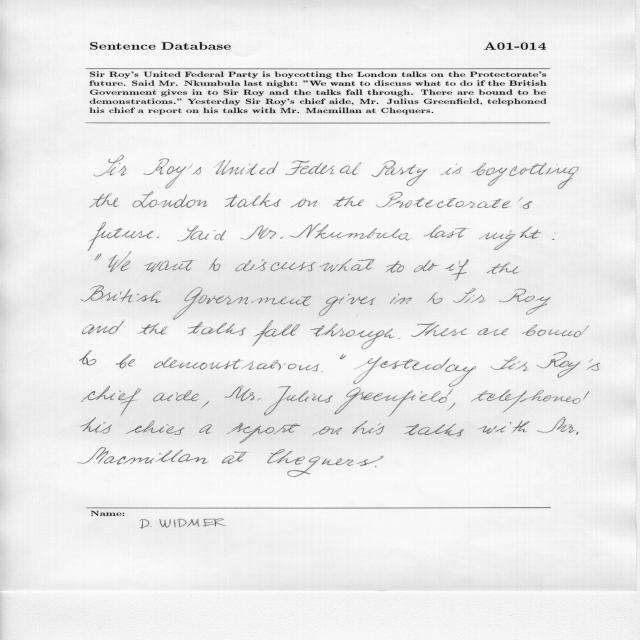 Sentence Database A01-014
Sir Roy's United Federal Party is boycotting the London talks on the Protectorate's
future. Said Mr. Nkumbula last night: "We want to discuss what to do if the British
Government gives in to Sir Roy and the talks fall through. There are bound to be
demonstrations." Yesterday Sir Roy's chief aide, Mr. Julius Greenfield, telephoned
his chief a report on his talks with Mr. Macmillan at Chequers.
Sir Roy's United Federal Party is boycotting
the London talks on the Protectorate's
future. Said Mr. Nkumbula last night :
"We want to discuss what to do if the
British Government gives in to Sir Roy
and the talks fall through. There are bound
to be demonstrations." Yesterday Sir Roy's
chief aide, Mr. Julius Greenfield, telephoned
his chies a report on his talks with Mr.
Macmillan at Chequers.
Name:
D. WIDMER